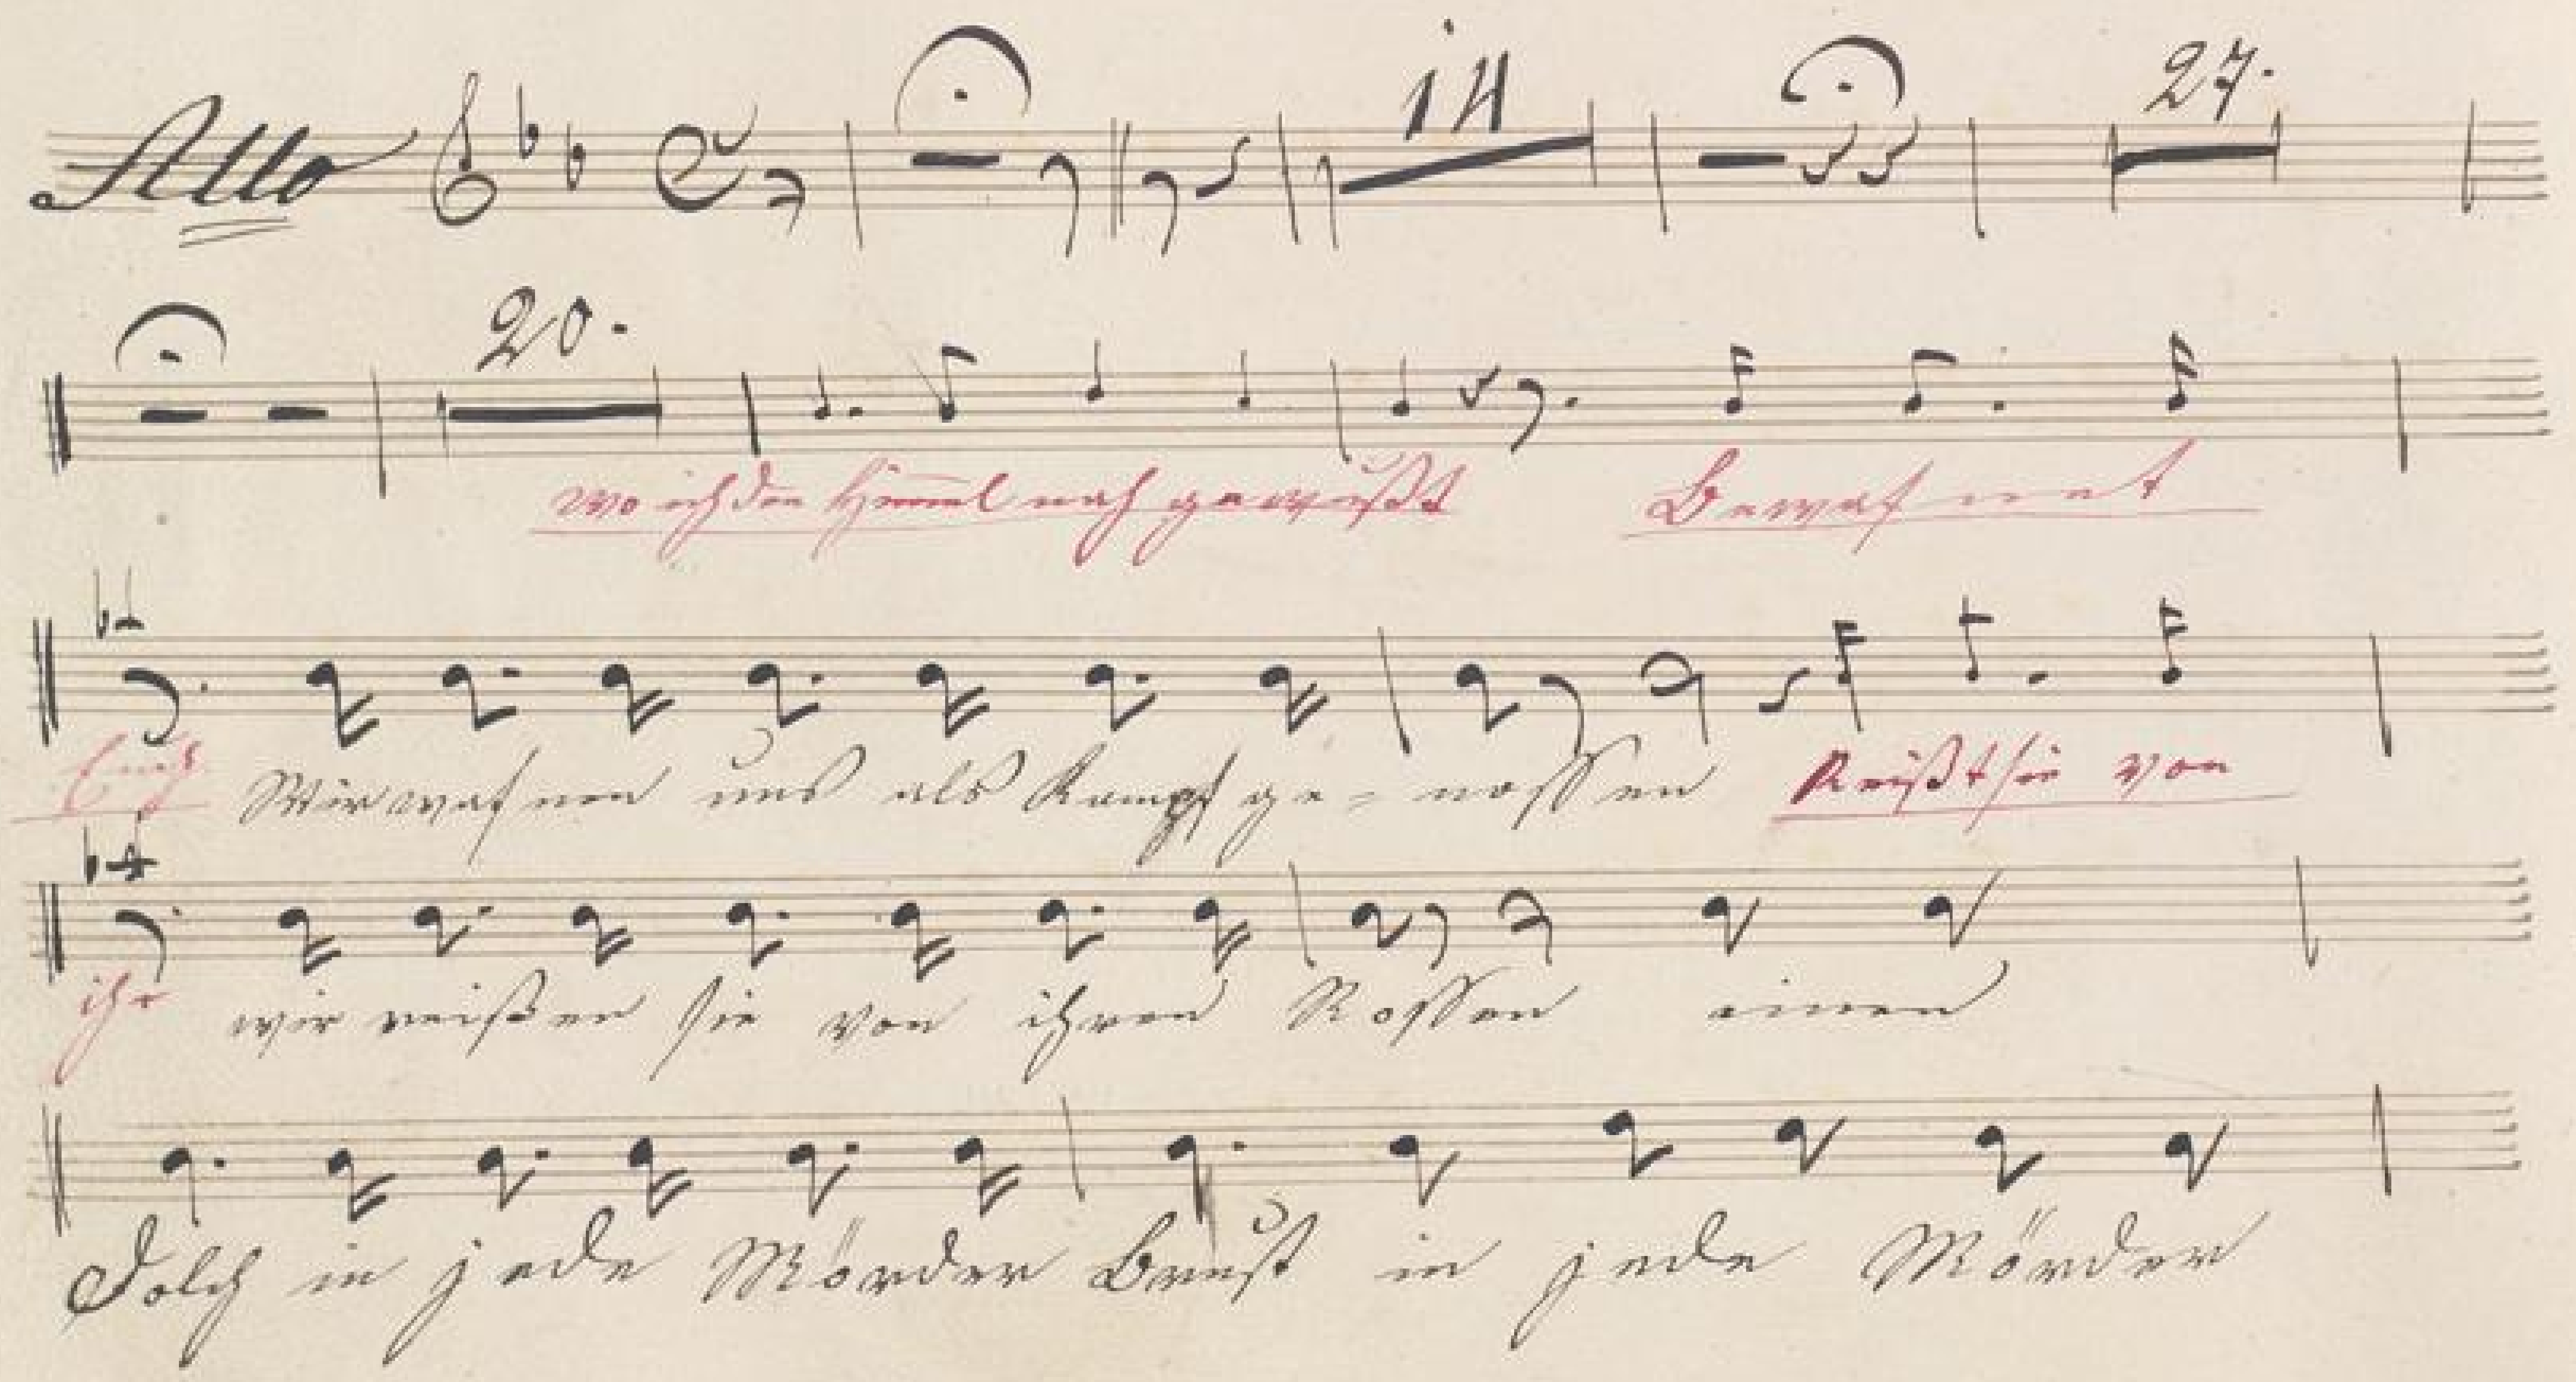 Allo 14 27.
20.
wo ich den Himel nah gewußt Bewafnet
Euch Wir wafnen uns als Kampf ge- nossen Reißt sie von
ihr wir reißen sie von ihren Rossen einen
Dolch in jede Mörder Brust in jede Mörder